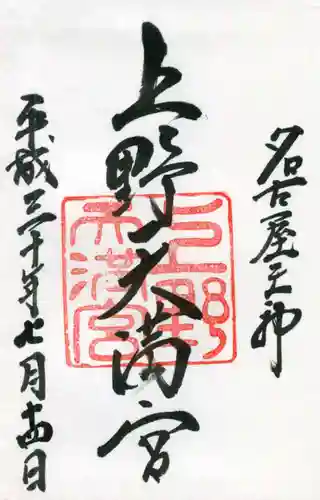 名古屋天神
上野天満宮
平成三十年七月十四日
上野天満宮